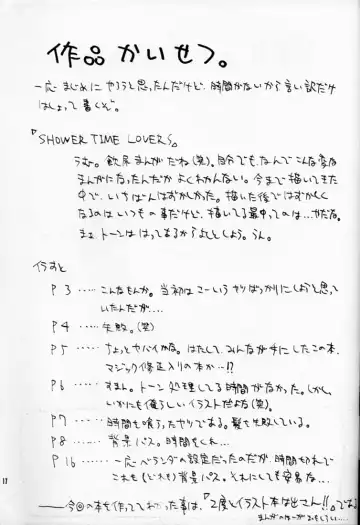 作品かいせつ。
一応まじめにやろうと思ったんだけど、時間がないから言い訳だけ
はしょって書くぞ。
『SHOWER TIME LOVERS。
うむ。飲尿まんがだね(笑)。自分でもなんでこんな変な
まんがになったんだかよくわかんない。今まで描いてきた
中で、いちばんはずかしかった。描いた後ではずかしく
なるのはいつもの事だけど、描いてる最中ってのは…やだね。
まぁトーンははってあるからよしとしよう。うん。
イラスト
P3 …… こんなもんか。当初はこーいうヤツばっかりにしようと思って
いたんだが…
P4 …… 失敗。(笑)
P5 …… ちょっとヤバイかな。はたして、みんなが手にしたこの本、
マジック修正入りの本か…!?
P6 …… すまん。トーン処理してる時間がなかった。しかし、
いかにも僕らしいイラストだよな(笑)。
P7 …… 時間を喰ったヤツである。髪を失敗している。
P8 …… 背景パス。時間もくれ…
P16 …… 一応ベランダの設定だったのだが時間切れで
これも(どれも)背景パス。それにしても安易な…
――今回の本を作っててわかった事は、『2度とイラスト本は出さん!!』である
まんがのほーが
17